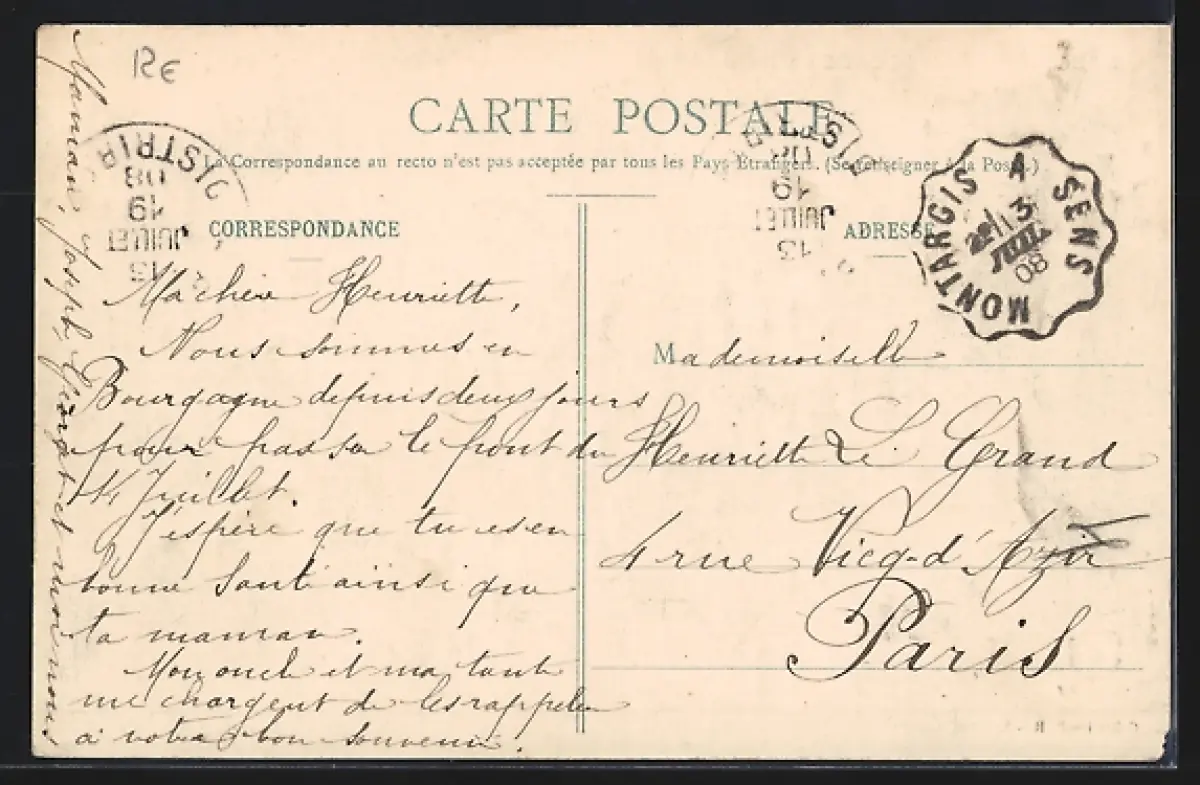 12€
3
CARTE POSTALE
La Correspondance au recto n'est pas acceptée par tous les Pays Étrangers. (Se renseigner à la Poste.)
CORRESPONDANCE
ADRESSE
MONTARGIS A SENS
13
JUIL
08
08
19
JUILLET
13
08
19
JUILLET
13
Ma chère Henriette,
Nous sommes en
Bourgogne depuis deux jours
pour passer le pont du
14 Juillet.
J'espère que tu es en
bonne santé ainsi que
ta maman.
Mon oncle et ma tante
me chargent de les rappeler
à votre bon souvenir.
Maman, Joseph, et moi
Mademoiselle
Henriette Le Grand
4 rue Vicq-d'Azir
Paris